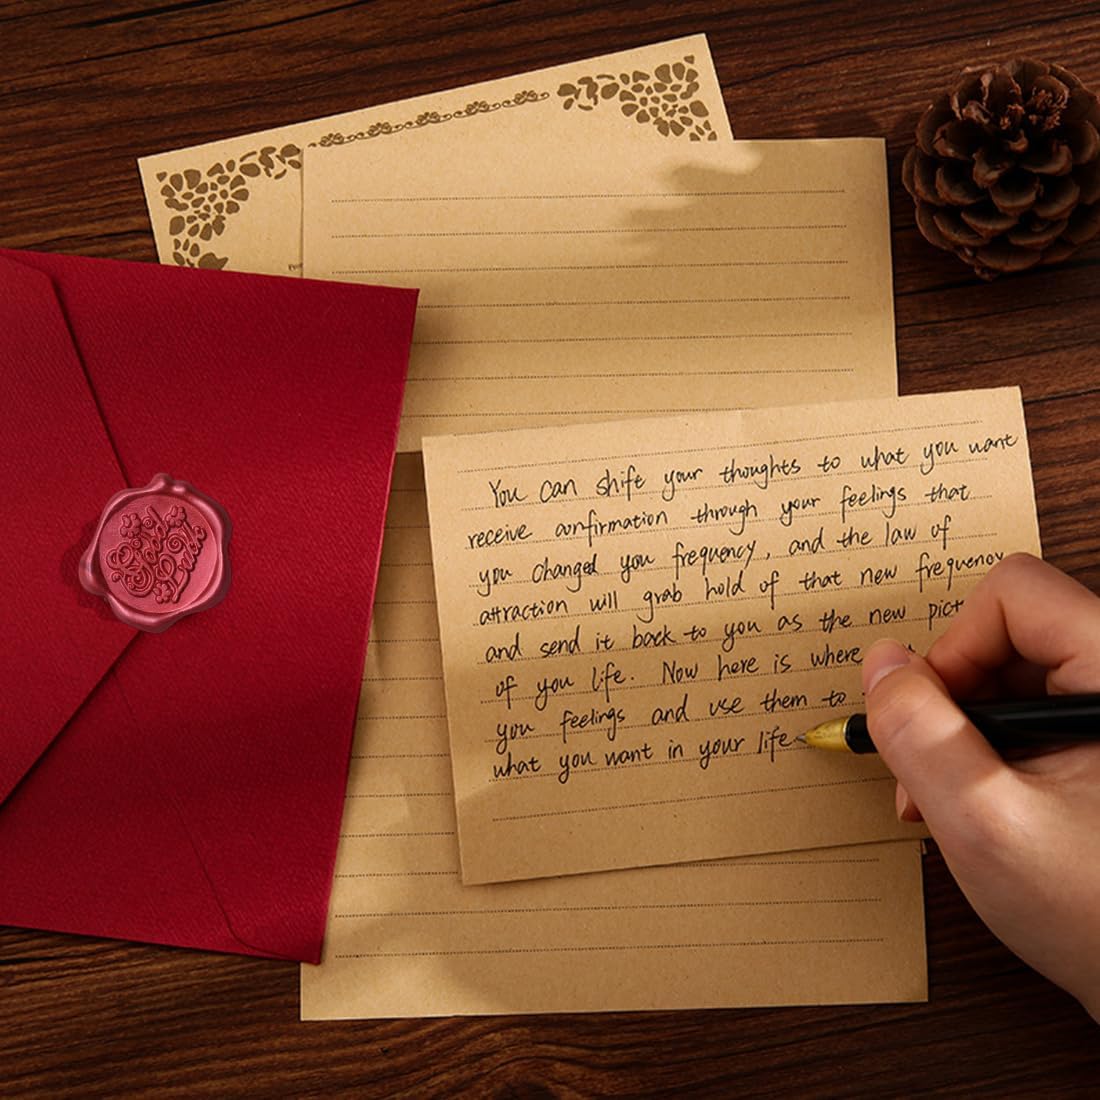 Good
Luck
You can shift your thoughts to what you want
receive confirmation through your feelings that
you changed you frequency, and the law of
attraction will grab hold of that new frequency
and send it back to you as the new
of you life. Now here is where
you feelings and use them to
what you want in your life